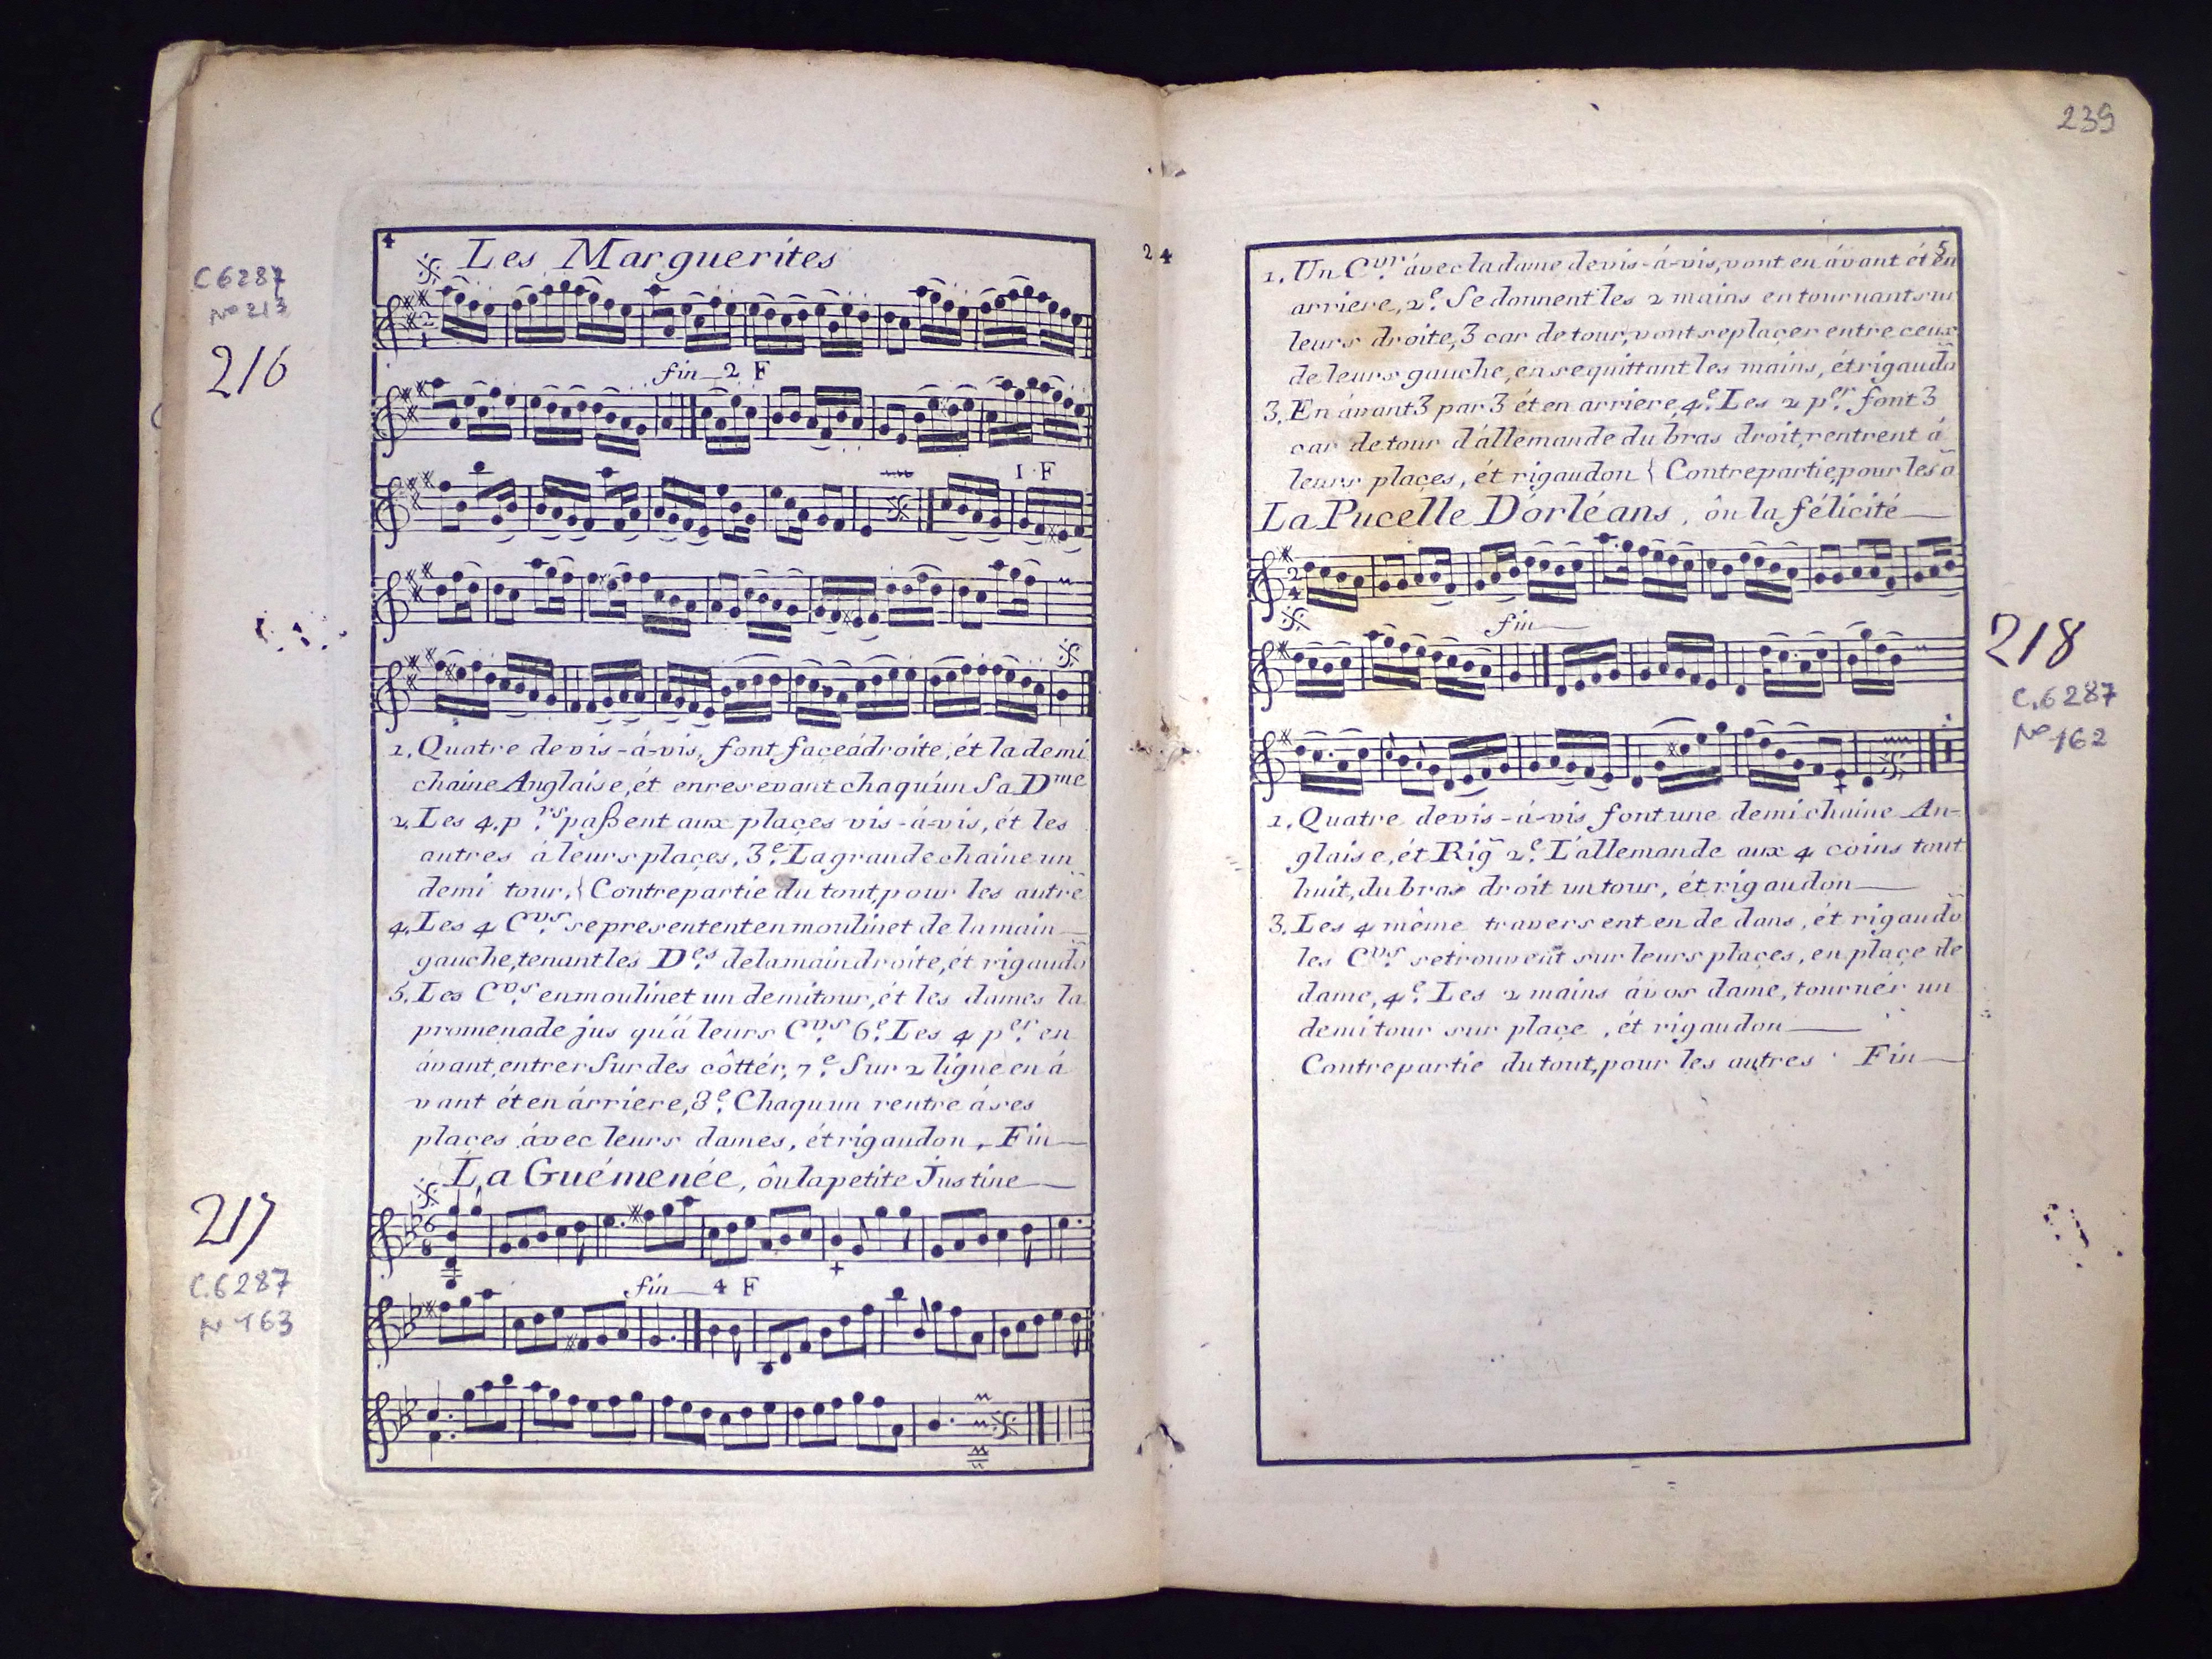 4
Les Marguerites
C 6287
No 213
216
fin 2 F
1 F
1. Quatre de vis-à-vis, font façe á droite, ét la demi
chaine Anglaise, ét en resevant chaqu'ún Sa Dme
2. Les 4. p.rs paßent aux plaçes vis-à-vis, ét les
autres á leurs plaçes, 3e. La grande chaine un
demi tour, { Contrepartie du tout, pour les autre
4. Les 4 Cvrs. se presentent en moulinet de la main
gauche, tenant les Des. de la main droite, ét rigaudō
5. Les Cvrs. en moulinet un demi tour, ét les dames la
promenade jus qu'á leurs Cvrs 6e. Les 4 per. en
ávant, entrer Sur des côttér, 7e. Sur 2 ligne en á
vant ét en árriere, 8e. Chaquun rentre á ses
plaçes ávec leurs dames, ét rigaudon, Fin
La Guémenée, ôu la petite Justine
217
C.6287
N 163
fin 4 F
24
239
5
1. Un Cvr. ávec la dame de vis-á-vis, vont en ávant ét en
arriere, 2e. Se donnent les 2 mains en tournant sur
leurs droite, 3 car de tour, vont se plaçer entre ceux
de leurs gauche, en se quittant les mains, ét rigaudō
3. En ávant 3 par 3 ét en arriere, 4e. Les 2 per. font 3
car de tour d'állemande du bras droit, rentrent á
leurs plaçes, ét rigaudon { Contrepartie, pour les ā
La Pucélle D'órléans, ôu la félicité
2
4
fin
218
C.6287
No 162
1. Quatre de vis-á-vis font une demi chaine An-
glaise, ét Rig̃ 2e. L'allemande aux 4 coins tout
huit, du bras droit un tour, ét rigaudon
3. Les 4 même traversent en de dans, ét rigaudō
les Cvrs. se trouvent sur leurs plaçes, en plaçe de
dame, 4e. Les 2 mains á vos dame, tournér un
demi tour sur plaçe, ét rigaudon
Contrepartie du tout, pour les autres Fin